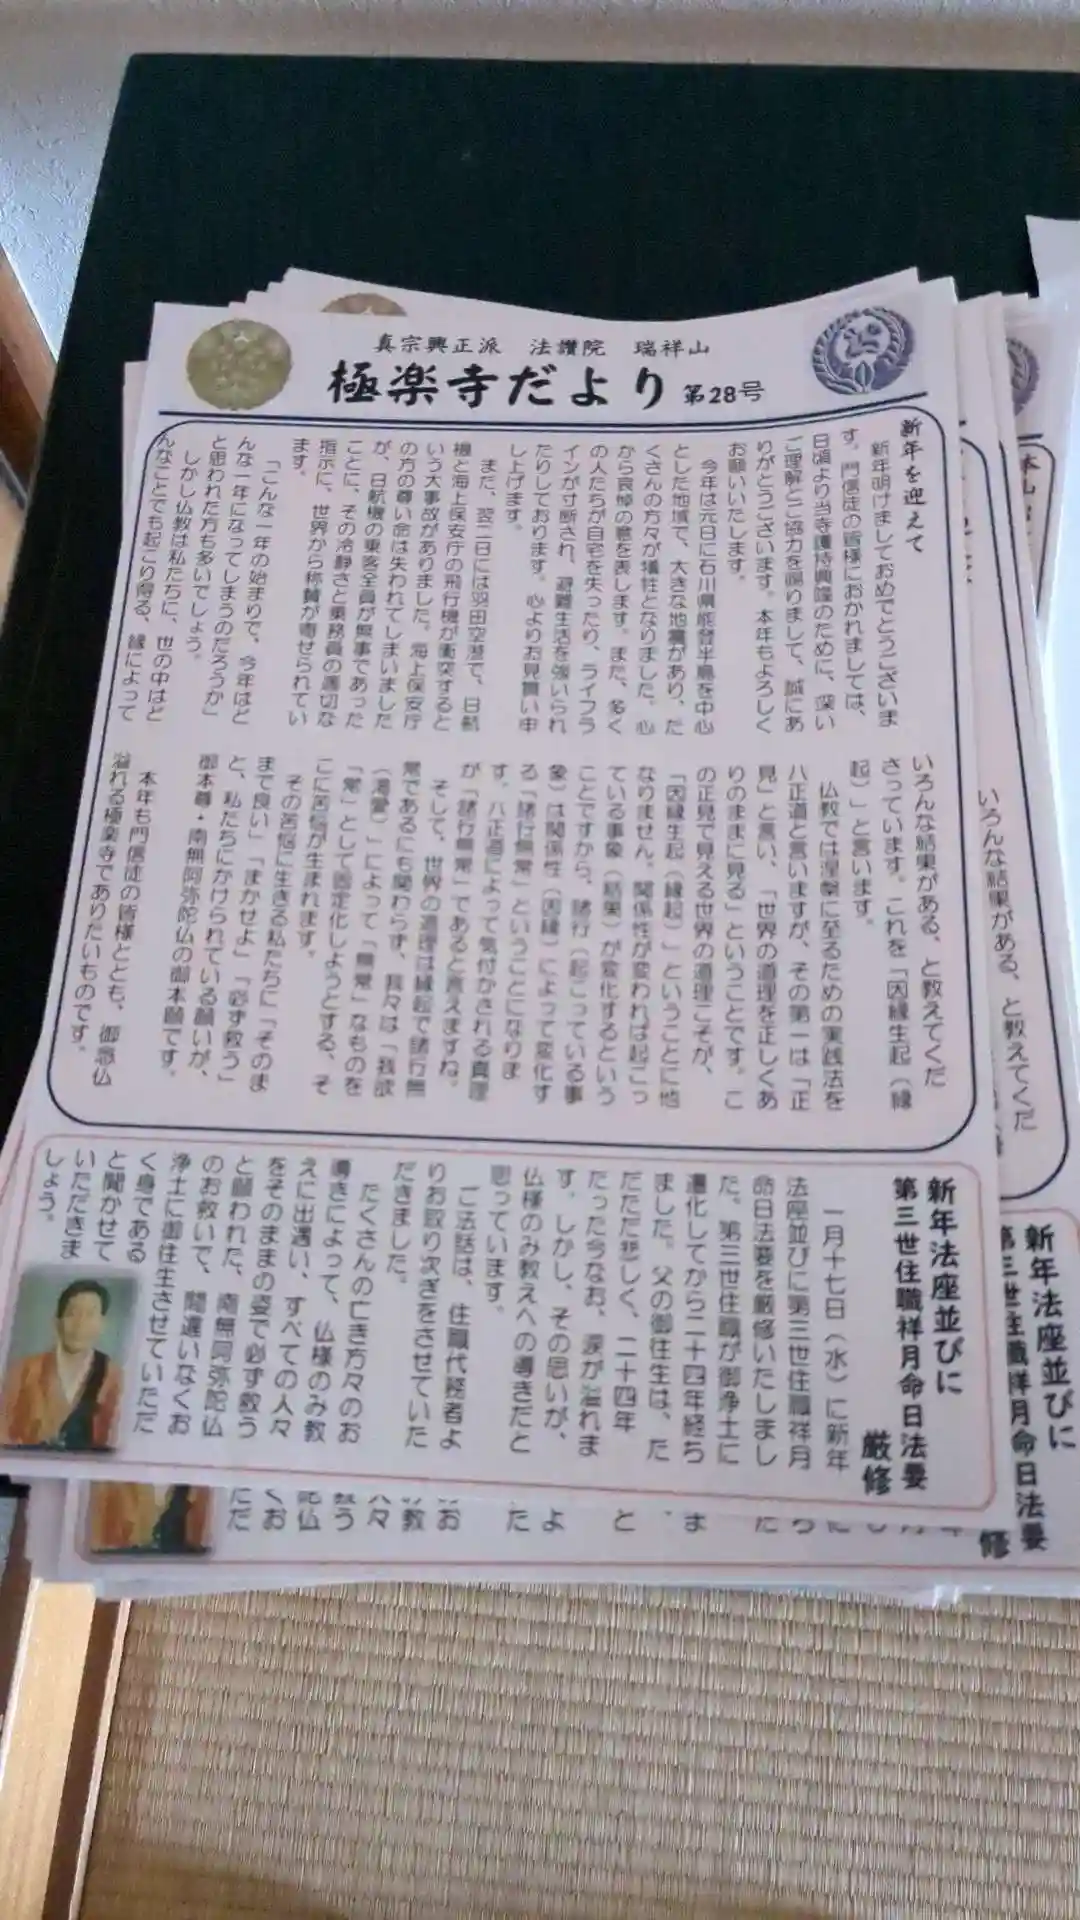 真宗興正派 法讃院 瑞祥山
極楽寺だより 第28号
新年を迎えて
新年明けましておめでとうございま
す。門信徒の皆様におかれましては、
日頃より当寺護持興隆のために、深い
ご理解とご協力を賜りまして、誠にあ
りがとうございます。本年もよろしく
お願いいたします。
今年は元日に石川県能登半島を中心
とした地域で、大きな地震があり、た
くさんの方々が犠牲となりました。心
から哀悼の意を表します。また、多く
の人たちが自宅を失ったり、ライフラ
インが寸断され、避難生活を強いられ
たりしております。心よりお見舞い申
し上げます。
また、翌二日には羽田空港で、日航
機と海上保安庁の飛行機が衝突すると
いう大事故がありました。海上保安庁
の方の尊い命は失われてしまいました
が、日航機の乗客全員が無事であった
ことに、その冷静さと乗務員の適切な
指示に、世界から称賛が寄せられてい
ます。
「こんな一年の始まりで、今年はど
んな一年になってしまうのだろうか」
と思われた方も多いでしょう。
しかし仏教は私たちに、世の中はど
んなことでも起こり得る、縁によって
いろんな結果がある、と教えてくだ
さっています。これを「因縁生起（縁
起）」と言います。
仏教では涅槃に至るための実践法を
八正道と言いますが、その第一は「正
見」と言い、「世界の道理を正しくあ
りのままに見る」ということです。こ
の正見で見える世界の道理こそが、
「因縁生起（縁起）」ということに他
なりません。関係性が変われば起こっ
ている事象（結果）が変化するという
ことですから、諸行（起こっている事
象）は関係性（因縁）によって変化す
る「諸行無常」ということになりま
す。八正道によって気付かされる真理
が「諸行無常」であると言えますね。
そして、世界の道理は縁起で諸行無
常であるにも関わらず、我々は「我欲
（渇愛）」によって「無常」なものを
「常」として固定化しようとする、そ
こに苦悩が生まれます。
その苦悩に生きる私たちに「そのま
まで良い」「まかせよ」「必ず救う」
と、私たちにかけられている願いが、
御本尊・南無阿弥陀仏の御本願です。
本年も門信徒の皆様とともに、御念仏
溢れる極楽寺でありたいものです。
新年法座並びに
第三世住職祥月命日法要
厳修
一月十七日（水）に新年
法座並びに第三世住職祥月
命日法要を厳修いたしまし
た。第三世住職が御浄土に
還化してから二十四年経ち
ました。父の御往生は、た
だただ悲しく、二十四年
たった今なお、涙が溢れま
す。しかし、その思いが、
仏様のみ教えへの導きだと
思っています。
ご法話は、住職代務者よ
りお取り次ぎをさせていた
だきました。
たくさんの亡き方々のお
導きによって、仏様のみ教
えに出遇い、すべての人々
をそのままの姿で必ず救う
と願われた、南無阿弥陀仏
のお救いで、間違いなくお
浄土に御往生させていただ
く身である
と聞かせて
いただきま
しょう。
いろんな結果がある、と教えてくだ
新年法座並びに
第三世住職祥月命日法要
修